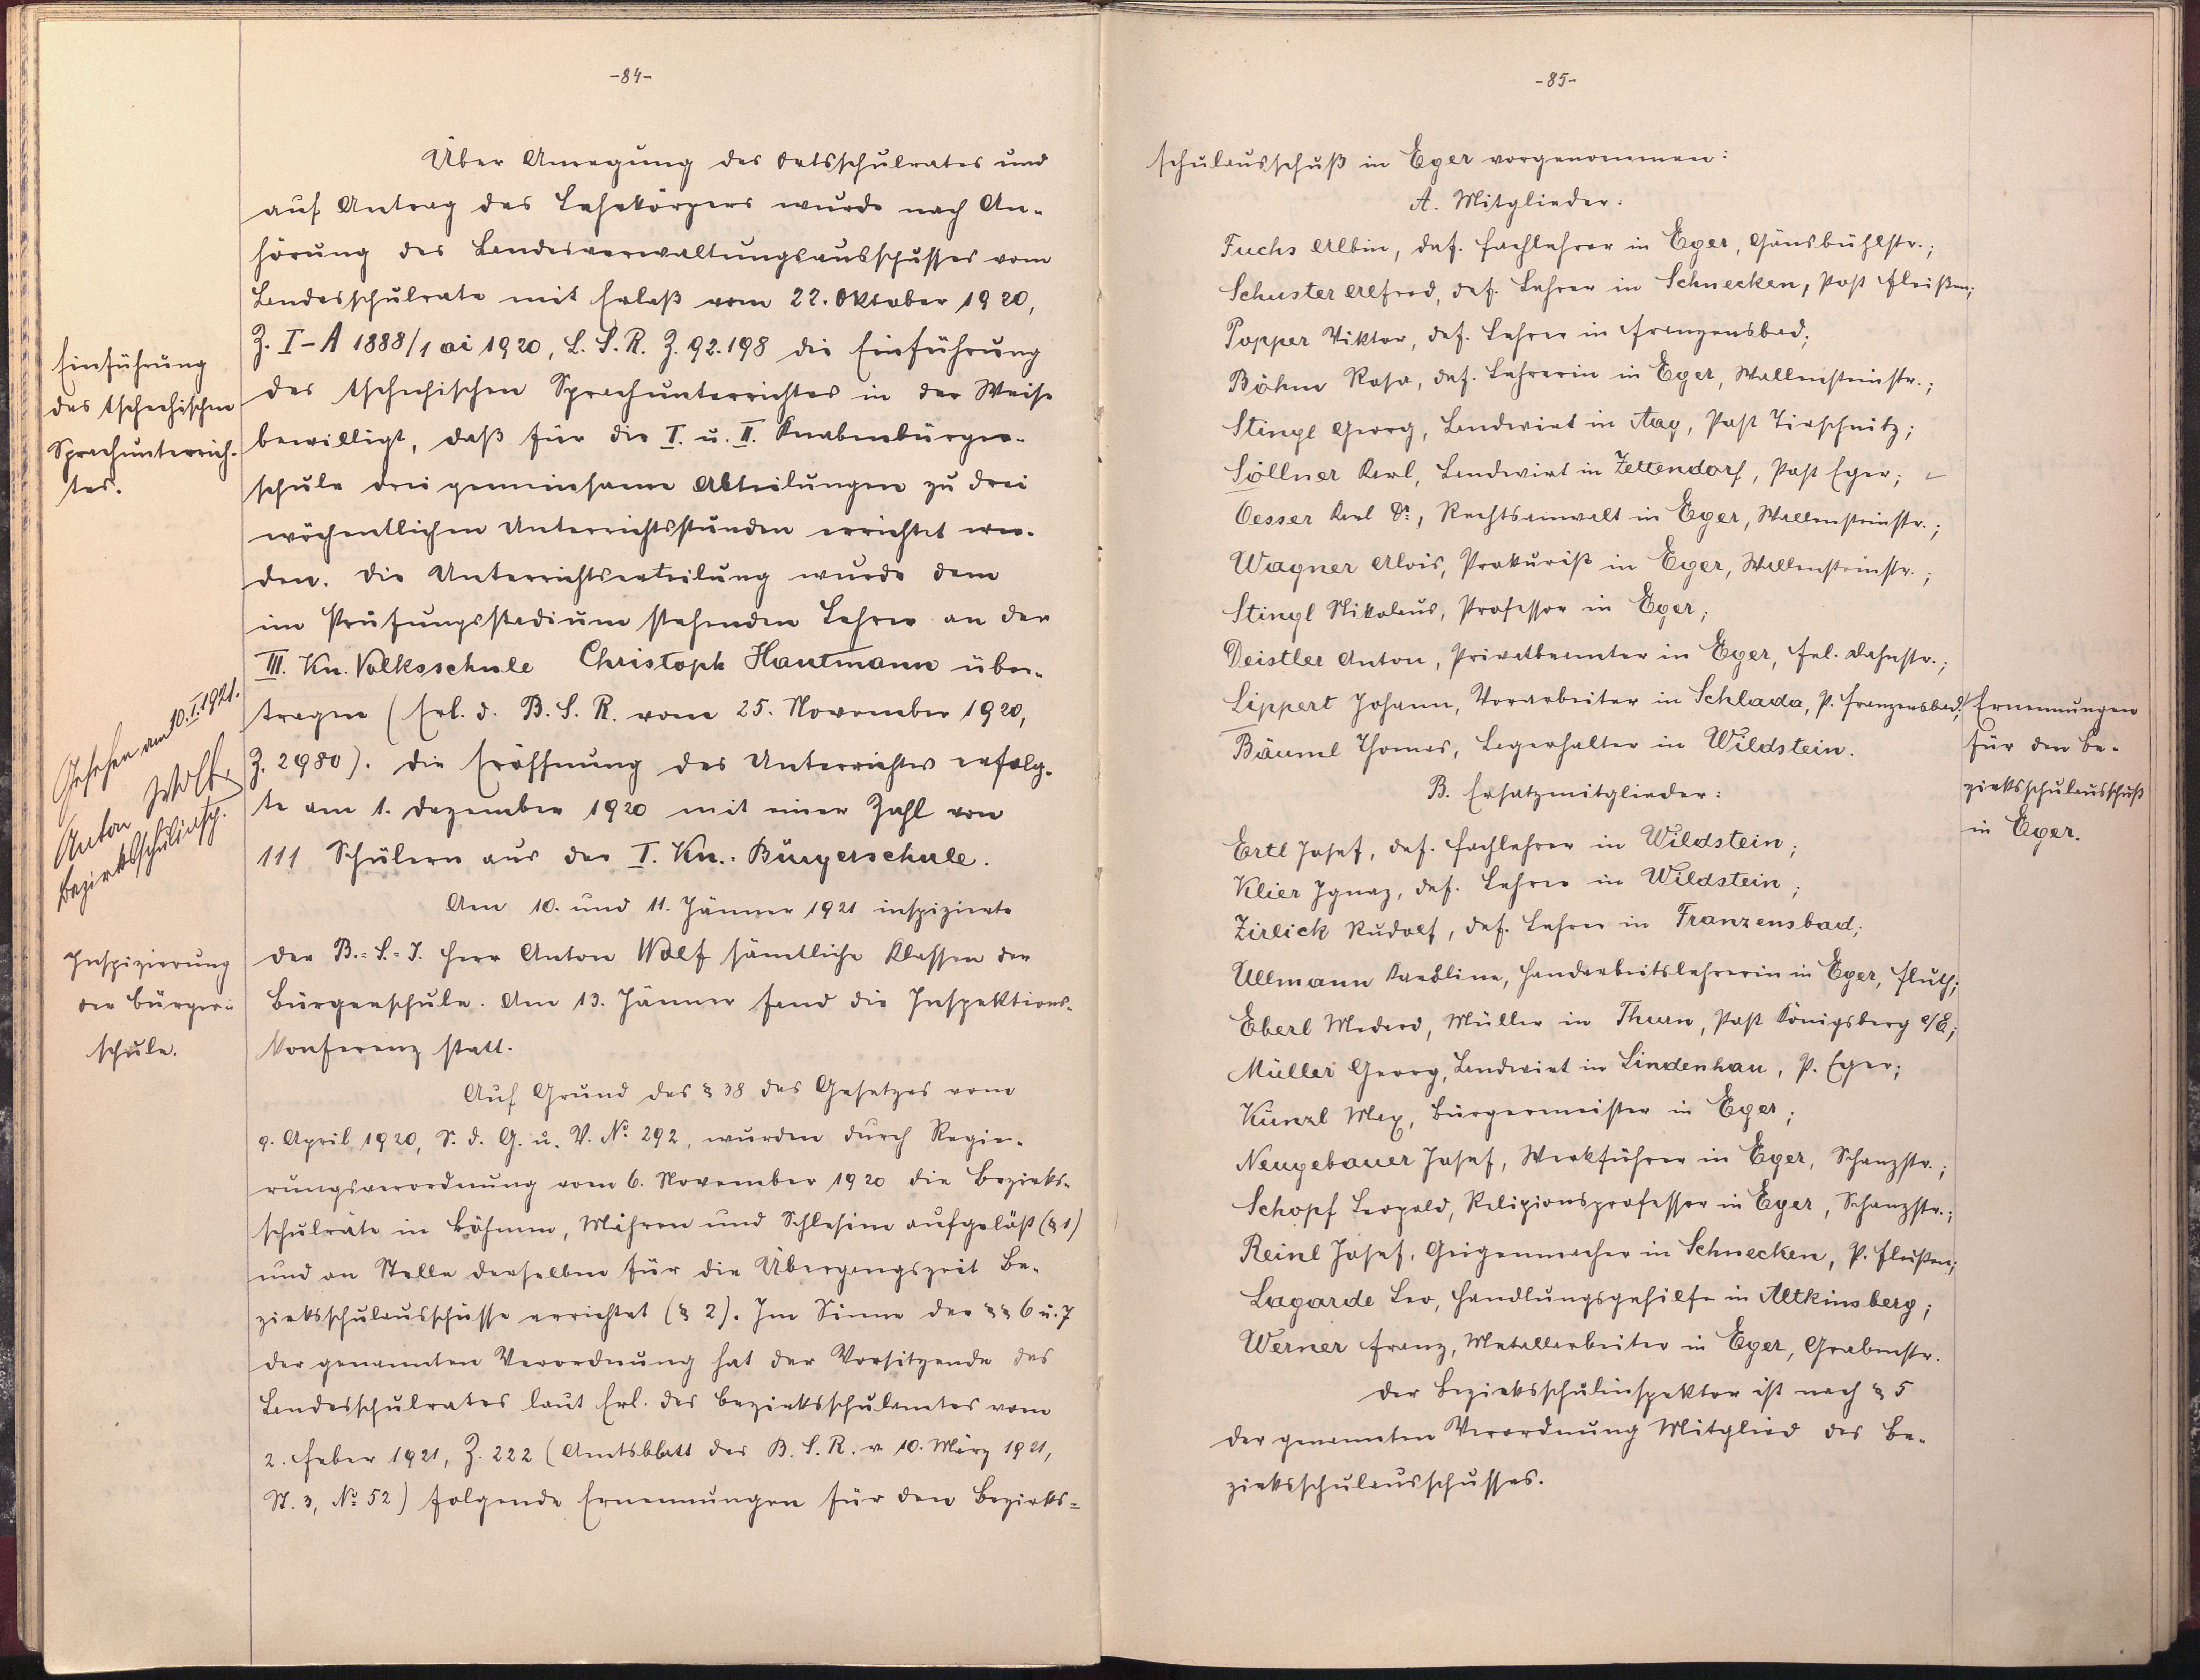 -84-
Über Anregung des Ortsschulrates und
auf Antrag des Lehrkörpers wurde nach An-
hörung des Landesverwaltungsausschusses vom
Landesschulrate mit Erlaß vom 22. Oktober 1920,
Z. I-A 1888/1 ai 1920, L. S. R. Z. 92.198 die Einführung
des tschechischen Sprachunterrichtes in der Weise
bewilligt, daß für die I. u. II. Knabenbürger-
schule drei gemeinsame Abteilungen zu drei
wöchentlichen Unterrichtsstunden errichtet wer-
den. Die Unterrichtserteilung wurde dem
im Prüfungsstadium stehenden Lehrer an der
III. Kn. Volksschule Christoph Hantmann über-
tragen (Erl. d. B. S. R. vom 25. November 1920,
Z. 2980). Die Eröffnung des Unterrichtes erfolg-
te am 1. Dezember 1920 mit einer Zahl von
111 Schülern aus der I. Kn.-Bürgerschule.
Am 10. und 11. Jänner 1921 inspizierte
der B.-S.-I. Herr Anton Wolf sämtliche Klassen der
Bürgerschule. Am 13. Jänner fand die Inspektions-
konferenz statt.
Auf Grund des § 38 des Gesetzes vom
9. April 1920, S. d. G. u. V. No 292, wurden durch Regie-
rungsverordnung vom 6. November 1920 die Bezirks-
schulräte in Böhmen, Mähren und Schlesien aufgelöst (§ 1)
und an Stelle derselben für die Übergangszeit Be-
zirksschulausschüsse errichtet (§ 2). Im Sinne der §§ 6 u. 7
der genannten Verordnung hat der Vorsitzende des
Landesschulrates laut Erl. des Bezirksschulamtes vom
2. Feber 1921, Z. 222 (Amtsblatt des B. S. R. v. 10. März 1921,
St. 3, No 52) folgende Ernennungen für den Bezirks-
Einführung
des tschechischen
Sprachunterrich-
tes.
Gesehen am 10.I.1921.
Anton Wolf,
Bezirksschulinsp.
Inspizierung
der Bürger-
schule.
-85-
schulausschuß in Eger vorgenommen:
A. Mitglieder:
Fuchs Albin, def. Fachlehrer in Eger, Gänsbühlstr.;
Schuster Alfred, def. Lehrer in Schnecken, Post Fleißen;
Popper Viktor, def. Lehrer in Franzensbad;
Böhm Rosa, def. Lehrerin in Eger, Wallensteinstr.;
Stingl Georg, Landwirt in Aag, Post Tirschnitz;
Söllner Karl, Landwirt in Zettendorf, Post Eger;
Oesser Karl Dr., Rechtsanwalt in Eger, Wallensteinstr.;
Wagner Alois, Prokurist in Eger, Wallensteinstr.;
Stingl Nikolaus, Professor in Eger;
Deistler Anton, Privatbeamter in Eger, Fel. Dahnstr.;
Lippert Johann, Vorarbeiter in Schlada, P. Franzensbad;
Bäuml Thomas, Lagerhalter in Wildstein.
B. Ersatzmitglieder:
Ertl Josef, def. Fachlehrer in Wildstein;
Klier Ignaz, def. Lehrer in Wildstein;
Zirlick Rudolf, def. Lehrer in Franzensbad;
Ullmann Karoline, Handarbeitslehrerin in Eger, Fluth;
Eberl Medard, Müller in Thurn, Post Königsberg a/E;
Müller Georg, Landwirt in Lindenhau, P. Eger;
Künzl Max, Bürgermeister in Eger;
Neugebauer Josef, Werkführer in Eger, Schanzstr.;
Schopf Leopold, Religionsprofessor in Eger, Schanzstr.;
Reinl Josef, Geigenmacher in Schnecken, P. Fleißen;
Lagarde Leo, Handlungsgehilfe in Altkinsberg;
Werner Franz, Metallarbeiter in Eger, Grabenstr.
Der Bezirksschulinspektor ist nach § 5
der genannten Verordnung Mitglied des Be-
zirksschulausschusses.
Ernennungen
für den Be-
zirksschulausschuß
in Eger.